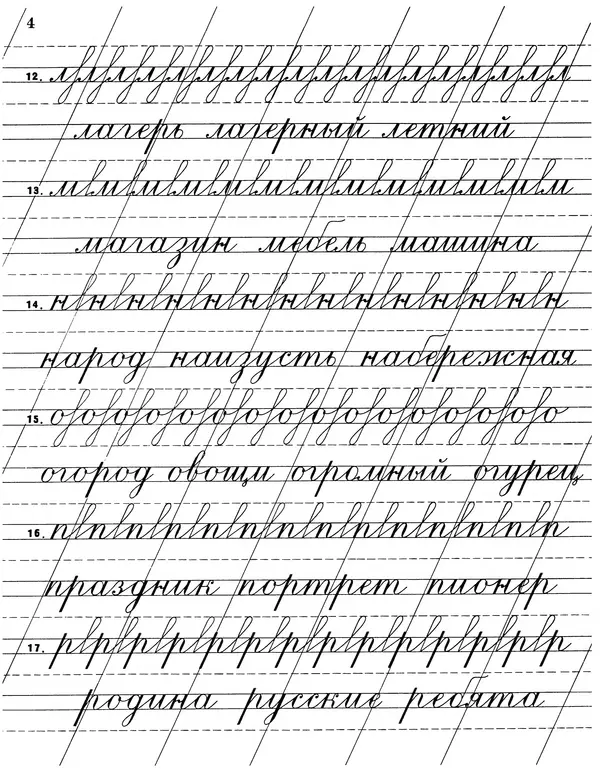 4
12. лллллллллллллллл
лагерь лагерный летний
13. мммммммммммммм
магазин мебель машина
14. нннннннннннннн
народ наизусть набережная
15. оооооооооооооооо
огород овощи огромный огурец
16. пппппппппппппп
праздник портрет пионер
17. рррррррррррррр
родина русские ребята